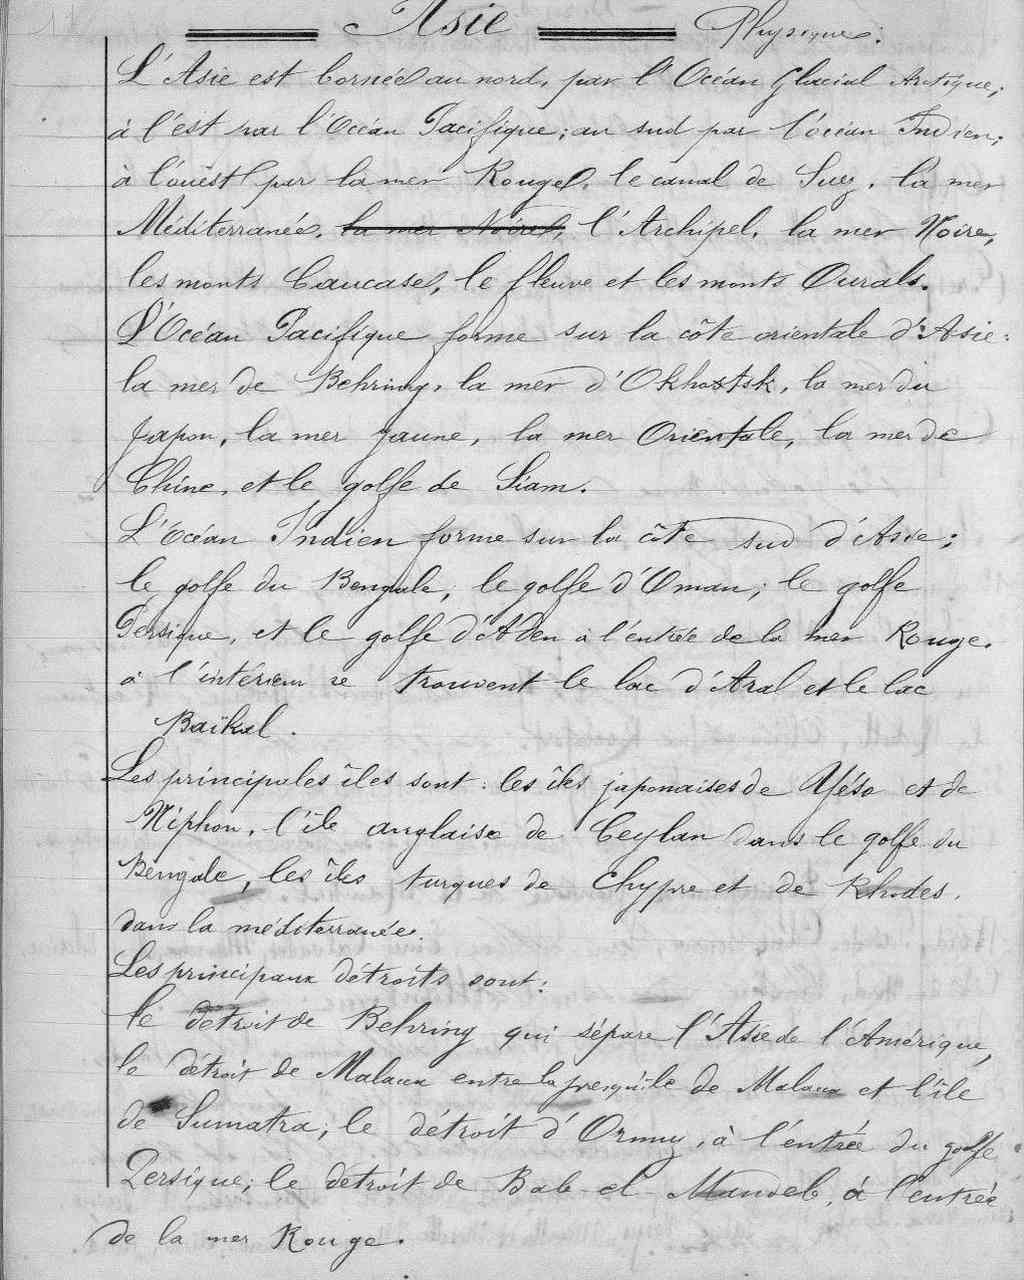 Asie Physique:
L'Asie est bornée au nord, par l'Océan Glacial Arctique;
à l'est par l'Océan Pacifique; au sud par l'océan Indien;
à l'ouest par la mer Rouge, le canal de Suez, la mer
Méditerranée, la mer Noire, l'Archipel, la mer Noire,
les monts Caucase, le fleuve et les monts Ourals.
L'Océan Pacifique forme sur la côte orientale d'Asie:
la mer de Behring, la mer d'Okhostsk, la mer du
Japon, la mer Jaune, la mer Orientale, la mer de
Chine, et le golfe de Siam.
L'Océan Indien forme sur la côte sud d'Asie;
le golfe du Bengale, le golfe d'Oman; le golfe
Persique, et le golfe d'Aden à l'entrée de la mer Rouge.
à l'intérieur se trouvent le lac d'Aral et le lac
Baïkal.
Les principales îles sont: les îles japonaises de Yéso et de
Niphon, l'île anglaise de Ceylan dans le golfe du
Bengale, les îles turques de Chypre et de Rhodes,
dans la méditerranée.
Les principaux détroits sont:
le détroit de Behring qui sépare l'Asie de l'Amérique,
le détroit de Malacca entre la presqu'île de Malacca et l'île
de Sumatra; le détroit d'Ormuz, à l'entrée du golfe
Persique; le détroit de Bab-el-Mandeb, à l'entrée
de la mer Rouge.